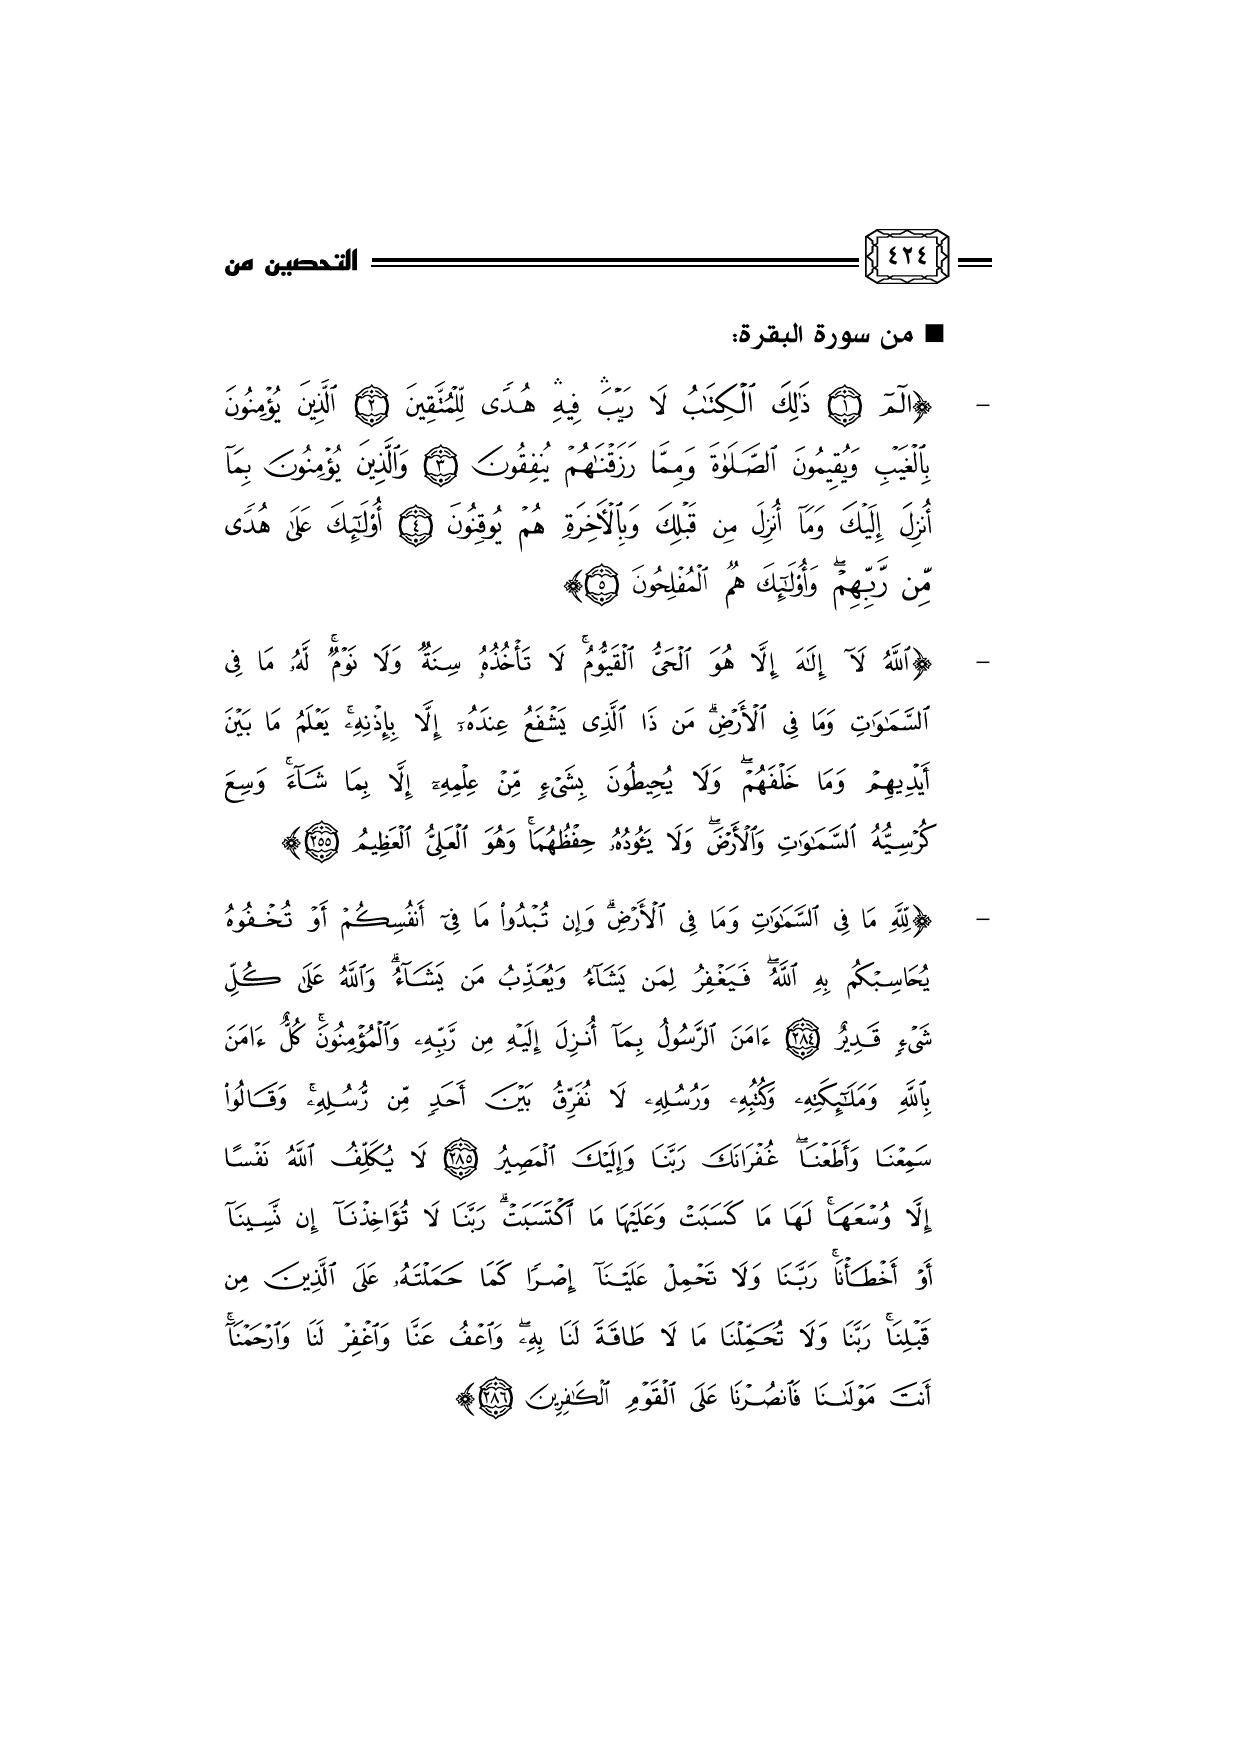 التحصين من ٤٢٤
■ من سورة البقرة:
- ﴿الٓمٓ ۝١ ذَٰلِكَ ٱلْكِتَٰبُ لَا رَيْبَ ۛ فِيهِ ۛ هُدًى لِّلْمُتَّقِينَ ۝٢ ٱلَّذِينَ يُؤْمِنُونَ
بِٱلْغَيْبِ وَيُقِيمُونَ ٱلصَّلَوٰةَ وَمِمَّا رَزَقْنَٰهُمْ يُنفِقُونَ ۝٣ وَٱلَّذِينَ يُؤْمِنُونَ بِمَآ
أُنزِلَ إِلَيْكَ وَمَآ أُنزِلَ مِن قَبْلِكَ وَبِٱلْأَخِرَةِ هُمْ يُوقِنُونَ ۝٤ أُو۟لَٰٓئِكَ عَلَىٰ هُدًى
مِّن رَّبِّهِمْ ۖ وَأُو۟لَٰٓئِكَ هُمُ ٱلْمُفْلِحُونَ ۝٥﴾
- ﴿ٱللَّهُ لَآ إِلَٰهَ إِلَّا هُوَ ٱلْحَىُّ ٱلْقَيُّومُ ۚ لَا تَأْخُذُهُۥ سِنَةٌ وَلَا نَوْمٌ ۚ لَّهُۥ مَا فِى
ٱلسَّمَٰوَٰتِ وَمَا فِى ٱلْأَرْضِ ۗ مَن ذَا ٱلَّذِى يَشْفَعُ عِندَهُۥٓ إِلَّا بِإِذْنِهِۦ ۚ يَعْلَمُ مَا بَيْنَ
أَيْدِيهِمْ وَمَا خَلْفَهُمْ ۖ وَلَا يُحِيطُونَ بِشَىْءٍ مِّنْ عِلْمِهِۦٓ إِلَّا بِمَا شَآءَ ۚ وَسِعَ
كُرْسِيُّهُ ٱلسَّمَٰوَٰتِ وَٱلْأَرْضَ ۖ وَلَا يَـُٔودُهُۥ حِفْظُهُمَا ۚ وَهُوَ ٱلْعَلِىُّ ٱلْعَظِيمُ ۝٢٥٥﴾
- ﴿لِّلَّهِ مَا فِى ٱلسَّمَٰوَٰتِ وَمَا فِى ٱلْأَرْضِ ۗ وَإِن تُبْدُوا۟ مَا فِىٓ أَنفُسِكُمْ أَوْ تُخْفُوهُ
يُحَاسِبْكُم بِهِ ٱللَّهُ ۖ فَيَغْفِرُ لِمَن يَشَآءُ وَيُعَذِّبُ مَن يَشَآءُ ۗ وَٱللَّهُ عَلَىٰ كُلِّ
شَىْءٍ قَدِيرٌ ۝٢٨٤ ءَامَنَ ٱلرَّسُولُ بِمَآ أُنزِلَ إِلَيْهِ مِن رَّبِّهِۦ وَٱلْمُؤْمِنُونَ ۚ كُلٌّ ءَامَنَ
بِٱللَّهِ وَمَلَٰٓئِكَتِهِۦ وَكُتُبِهِۦ وَرُسُلِهِۦ لَا نُفَرِّقُ بَيْنَ أَحَدٍ مِّن رُّسُلِهِۦ ۚ وَقَالُوا۟
سَمِعْنَا وَأَطَعْنَا ۖ غُفْرَانَكَ رَبَّنَا وَإِلَيْكَ ٱلْمَصِيرُ ۝٢٨٥ لَا يُكَلِّفُ ٱللَّهُ نَفْسًا
إِلَّا وُسْعَهَا ۚ لَهَا مَا كَسَبَتْ وَعَلَيْهَا مَا ٱكْتَسَبَتْ ۗ رَبَّنَا لَا تُؤَاخِذْنَآ إِن نَّسِينَآ
أَوْ أَخْطَأْنَا ۚ رَبَّنَا وَلَا تَحْمِلْ عَلَيْنَآ إِصْرًا كَمَا حَمَلْتَهُۥ عَلَى ٱلَّذِينَ مِن
قَبْلِنَا ۚ رَبَّنَا وَلَا تُحَمِّلْنَا مَا لَا طَاقَةَ لَنَا بِهِۦ ۖ وَٱعْفُ عَنَّا وَٱغْفِرْ لَنَا وَٱرْحَمْنَآ ۚ
أَنتَ مَوْلَىٰنَا فَٱنصُرْنَا عَلَى ٱلْقَوْمِ ٱلْكَٰفِرِينَ ۝٢٨٦﴾